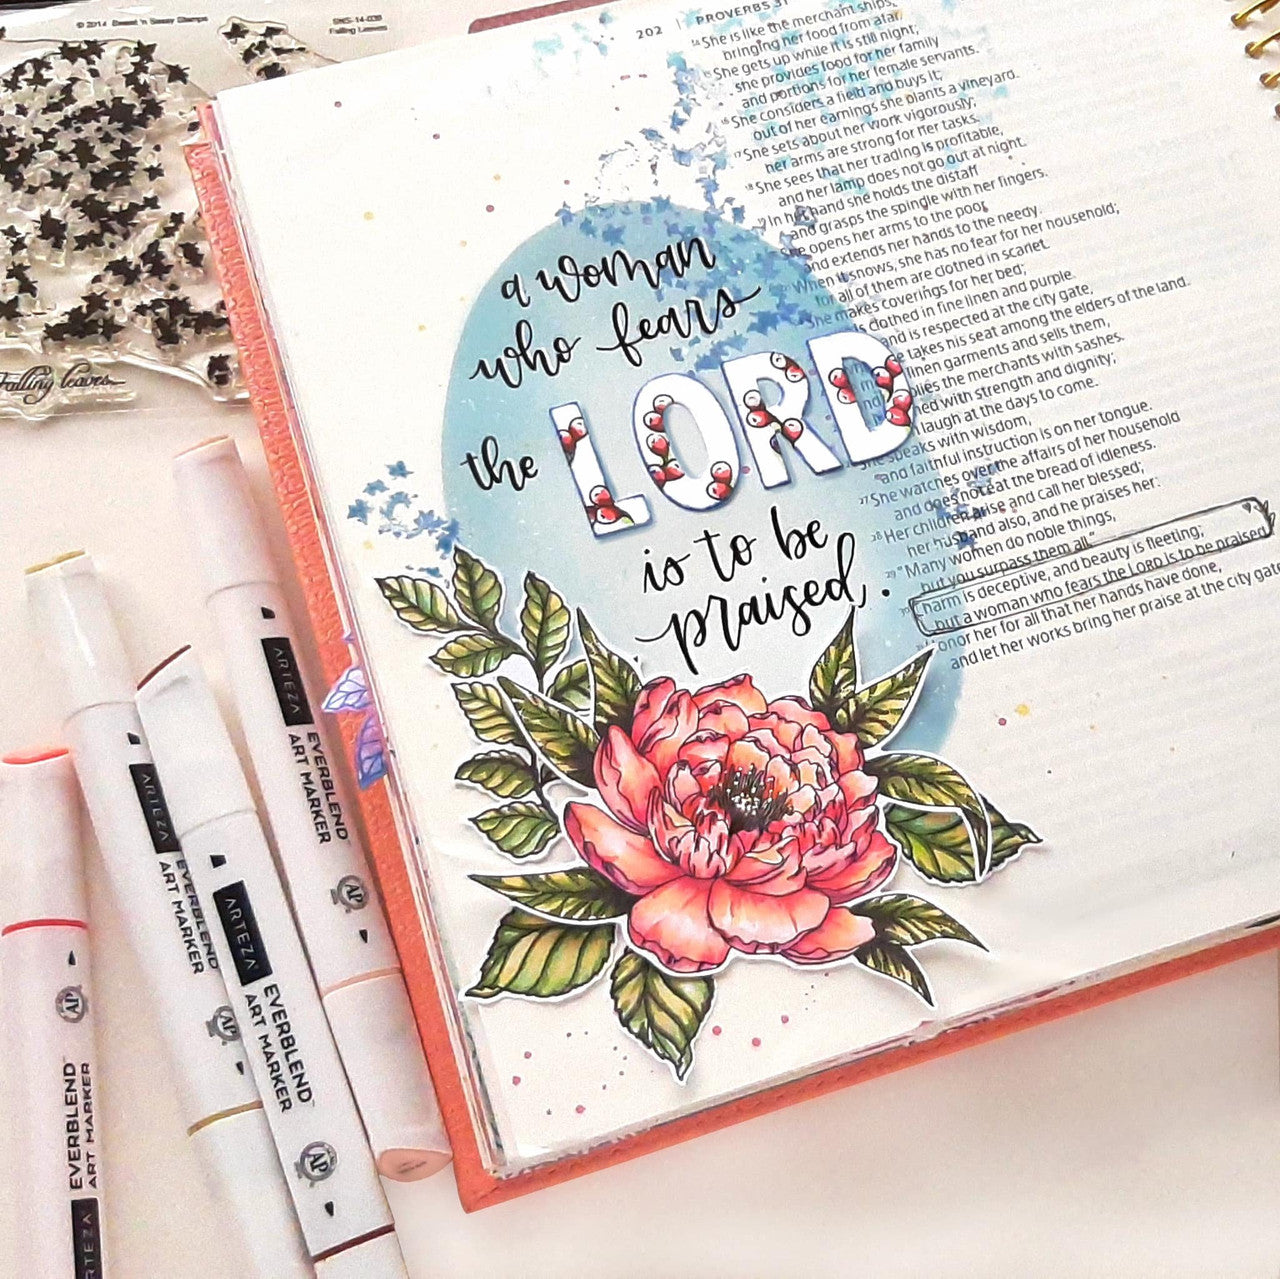 © 2014 Sweet 'n Sassy Stamps
SNS-14-038
Falling Leaves
Falling leaves...
202 | PROVERBS 31
14 She is like the merchant ships,
bringing her food from afar.
15 She gets up while it is still night;
she provides food for her family
and portions for her female servants.
16 She considers a field and buys it;
out of her earnings she plants a vineyard.
17 She sets about her work vigorously;
her arms are strong for her tasks.
18 She sees that her trading is profitable,
and her lamp does not go out at night.
19 In her hand she holds the distaff
and grasps the spindle with her fingers.
She opens her arms to the poor
and extends her hands to the needy.
When it snows, she has no fear for her household;
for all of them are clothed in scarlet.
She makes coverings for her bed;
is clothed in fine linen and purple.
and is respected at the city gate,
takes his seat among the elders of the land.
linen garments and sells them,
plies the merchants with sashes.
ed with strength and dignity;
laugh at the days to come.
She speaks with wisdom,
and faithful instruction is on her tongue.
27 She watches over the affairs of her household
and does not eat the bread of idleness.
28 Her children arise and call her blessed;
her husband also, and he praises her:
29 "Many women do noble things,
but you surpass them all."
30 Charm is deceptive, and beauty is fleeting;
but a woman who fears the LORD is to be praised.
Honor her for all that her hands have done,
and let her works bring her praise at the city gate
a woman
who fears
the LORD
is to be
praised.
ARTEZA
EVERBLEND
ART MARKER
AP
ARTEZA
EVERBLEND
ART MARKER
AP
ARTEZA
EVERBLEND™
ART MARKER
AP
AP
EVERBLEND™
ART MARKER
ARTEZA